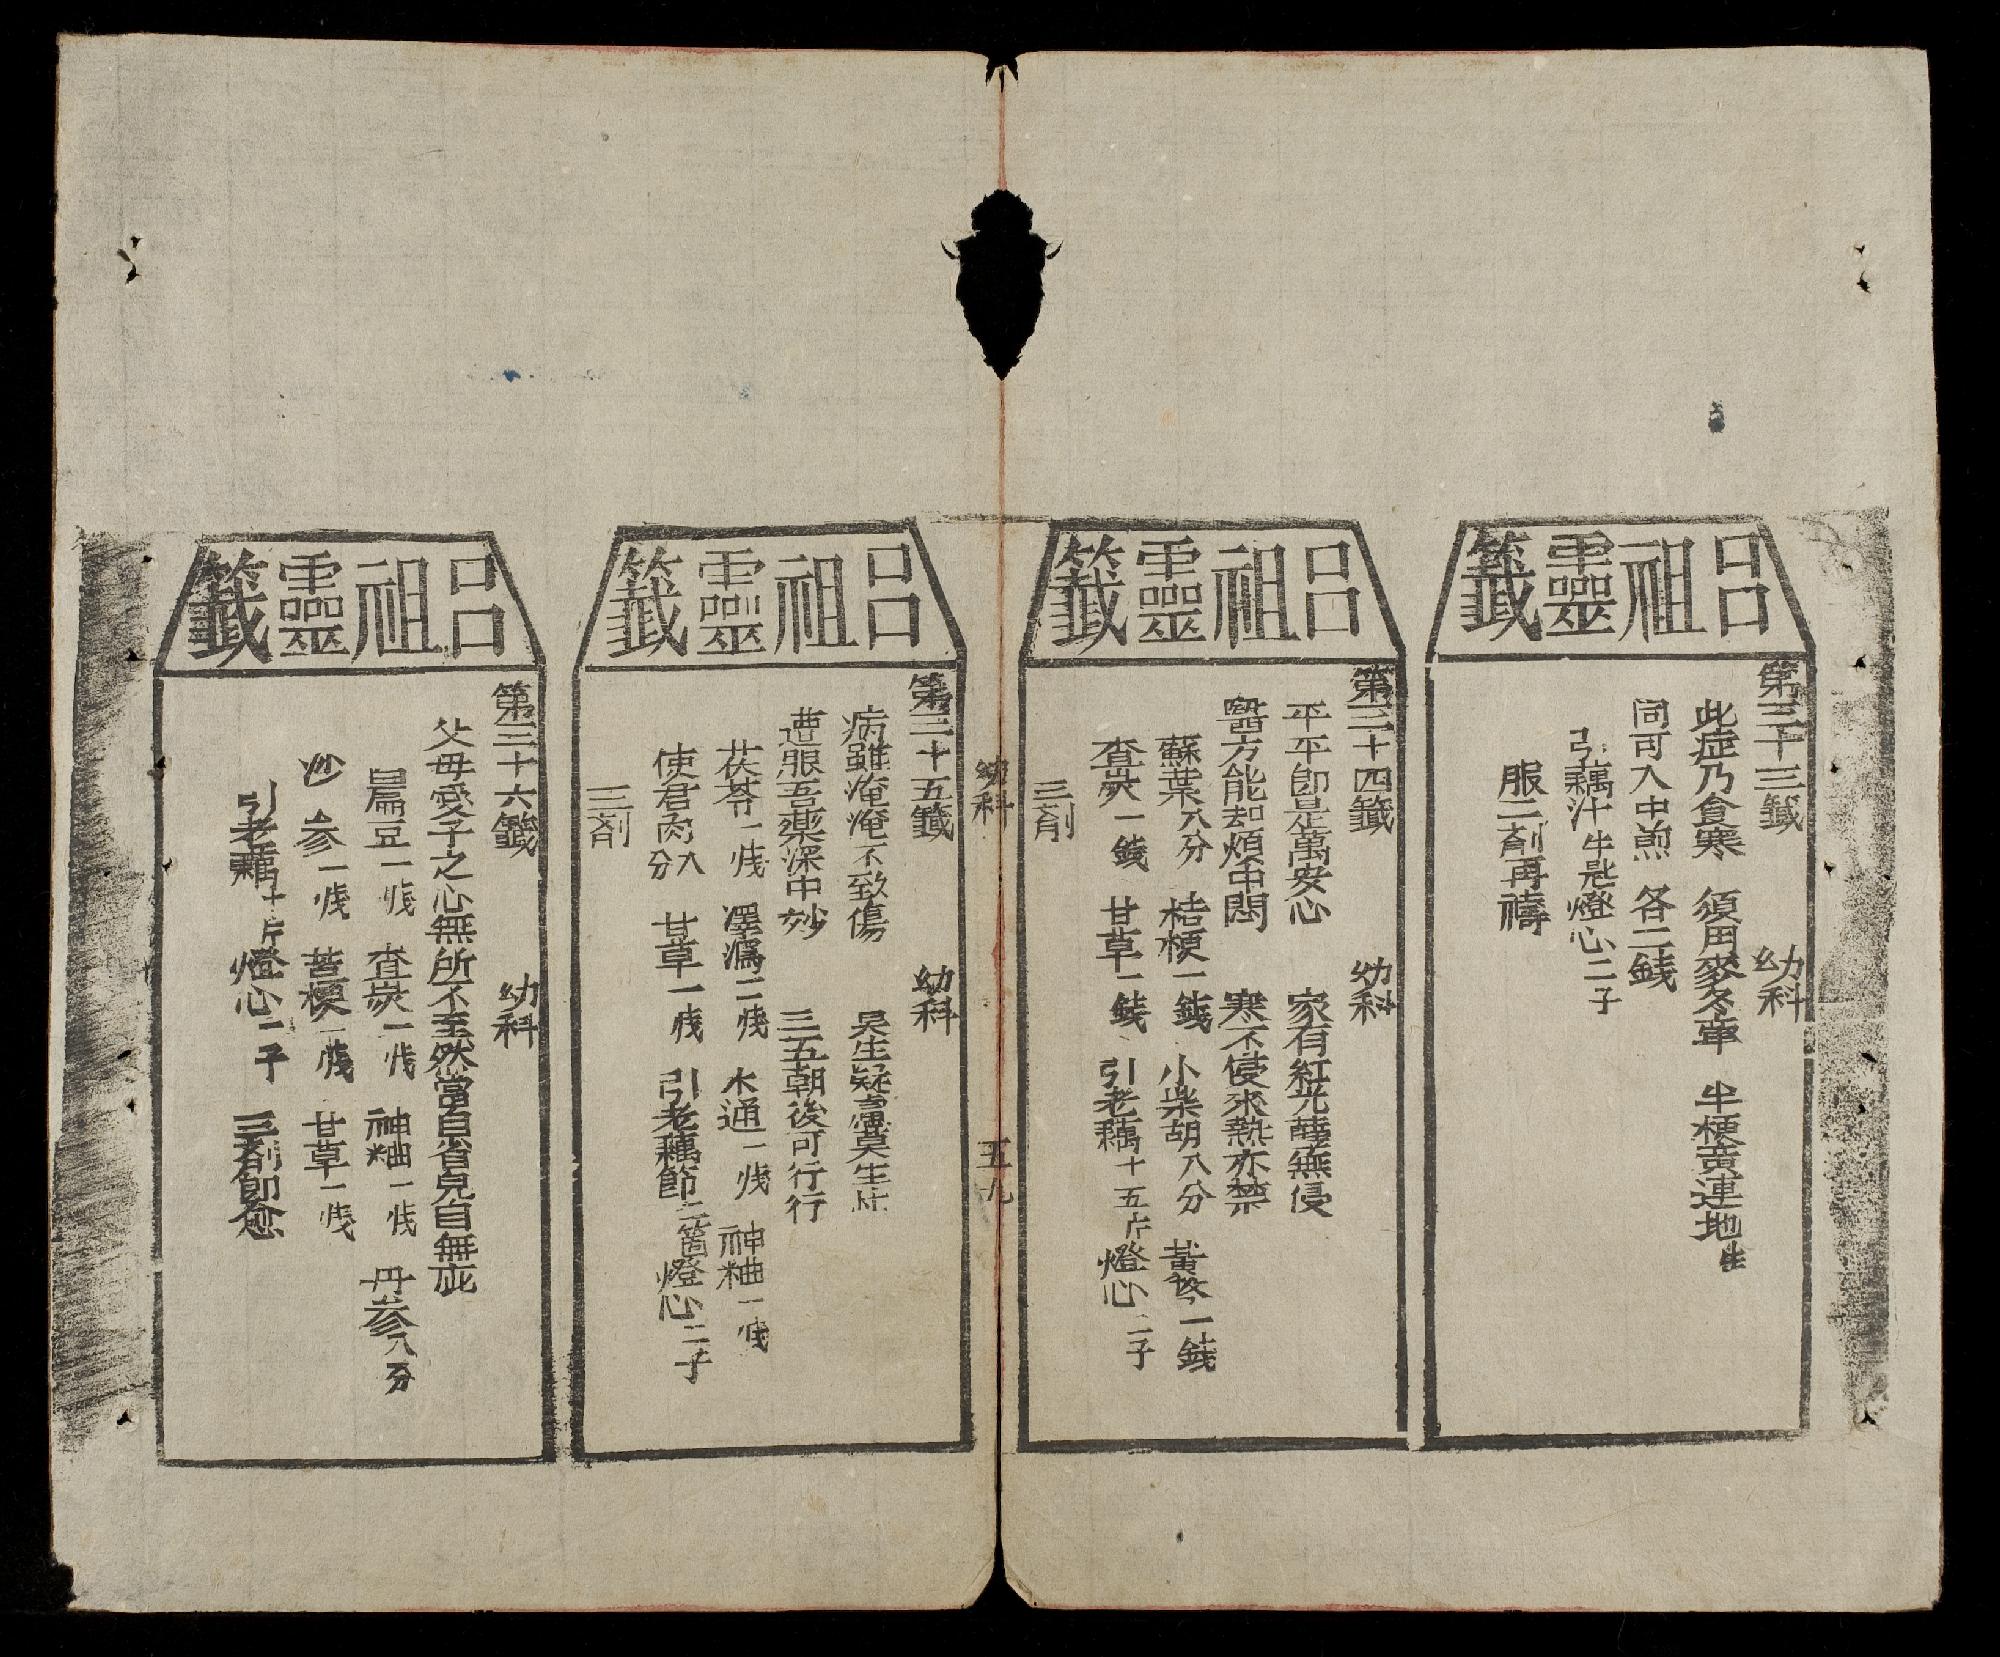 呂祖靈籤
第三十三籤 幼科
此症乃食寒 須用麥冬章 半梗黃連地生
同可入中煎 各二錢
引藕汁半匙燈心二子
服二剤再禱
呂祖靈籤
第三十四籤 幼科
平平卽是萬安心 家有紅光薩無侵
醫方能却煩中悶 寒不侵來熱亦禁
蘇葉八分 桔梗一錢 小柴胡八分 黃芩一錢
查炭一錢 甘草一錢 引老藕十五片燈心二子
三剤
幼科 五九
呂祖靈籤
第三十五籤 幼科
病雖淹淹不致傷 吴生疑慮莫生
遭服吾藥深中妙 三五朝後可行行
茯苓一戋 澤瀉二戋 木通一戋 神粬一戋
使君肉八分 甘草一戋 引老藕節二箇燈心二子
三剤
呂祖靈籤
第三十六籤 幼科
父母愛子之心無所不至然當自省兒自無疵
扁豆一戋 查炭一戋 神粬一戋 丹參八分
沙參一戋 苦梗一戋 甘草一戋
引老藕十片燈心一子 三剤卽愈